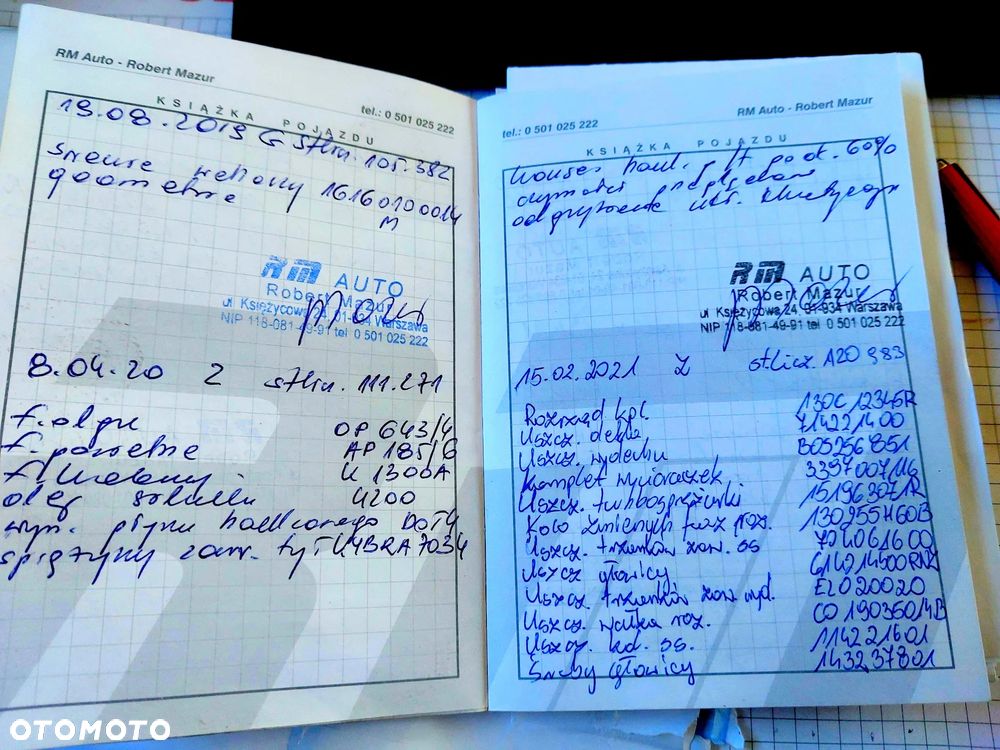 RM Auto - Robert Mazur
tel.: 0 501 025 222
KSIĄŻKA POJAZDU
19.08.2019 G st.lin. 105.382
16160100014
geometrie
M
RM AUTO
Robert Mazur
ul Księżycowa 24, 01-934 Warszawa
NIP 118-081-49-91 tel 0 501 025 222
8.04.20 Z st.lin. 111.271
f. oleju OP 643/4
f. powietrze AP 185/6
f/kabiny K 1300A
olej silnika 4200
wym. płynu hamlcowego DOT4
sprężyny zaw. tył K4BRA7034
RM Auto - Robert Mazur
tel.: 0 501 025 222
KSIĄŻKA POJAZDU
ham. p/t po ok. 60%
RM AUTO
Robert Mazur
ul Księżycowa 24, 01-934 Warszawa
NIP 118-081-49-91 tel 0 501 025 222
15.02.2021 Z st.licz. 120 983
Rozrząd kpl. 130C12345R
Uszcz. dekla 714221400
Uszcz. wydechu B05256851
Komplet wycieraczek 3397007116
Uszcz. turbosprężarki 151963071R
Koło zmiennych faz roz. 130255H60B
Uszcz. trzonków zaw. ss 702061600
Uszcz głowicy 614214500RNZ
Uszcz. trzonków zaw wyd. EL020020
Uszcz. wałka roz. CO19035014B
Uszcz. kol. ss. 114221601
Śruby głowicy 143237801
OTOMOTO